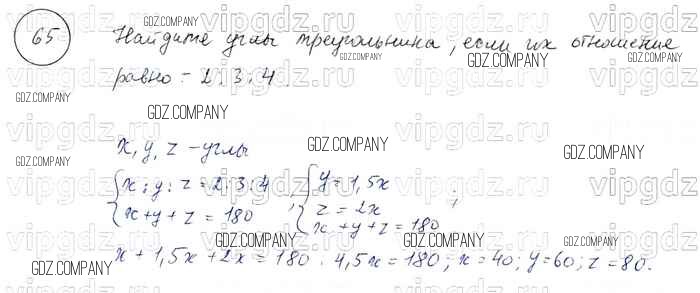 65 Найдите углы треугольника, если их отношение
равно - 2 : 3 : 4.
x, y, z - углы
{ x : y : z = 2 : 3 : 4 ; { y = 1,5x ;
x + y + z = 180 z = 2x
x + y + z = 180
x + 1,5x + 2x = 180 . 4,5x = 180 ; x = 40 ; y = 60 ; z = 80.
GDZ.COMPANY
vipgdz.ru